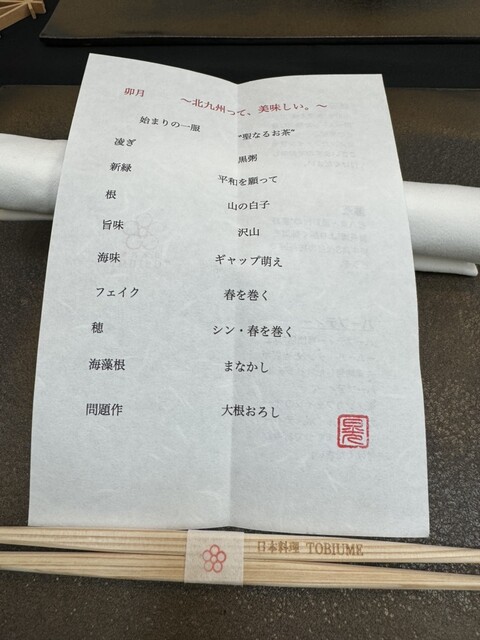 卯月　〜北九州って、美味しい。〜
始まりの一服　“聖なるお茶”
凌ぎ　黒粥
新緑　平和を願って
根　山の白子
旨味　沢山
海味　ギャップ萌え
フェイク　春を巻く
穂　シン・春を巻く
海藻根　まなかし
問題作　大根おろし
日本料理 TOBIUME